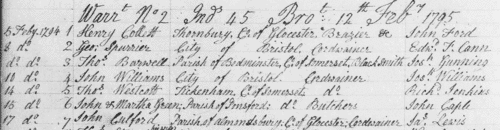 Warrt. No. 2 Ind 45 Brot. 12th Feby. 1795
5 Feby. 1794 1 Henry Collett Thornbury, Co. of Glocester Brazier &c John Ford
8 do. 2 Geo. Spurrier City of Bristol Cordwainer Edwd. T. Cann
do. do. 3 Thos. Barwell Parish of Bedminster, Co. of Somerset, Black Smith Jos. Gunning
10 do. 4 John Williams City of Bristol Cordwainer Jos. Williams
14 do. 5 Thos. Westcott Tickenham, Co. of Somerset do. Richd. Jenkins
15 do. 6 John & Martha Green, Parish of Pensford: do. Butchers John Caple
17 do. 7 John Culford Parish of Almondsbury, Co. of Glocester: Cordwainer Jas. Lewis